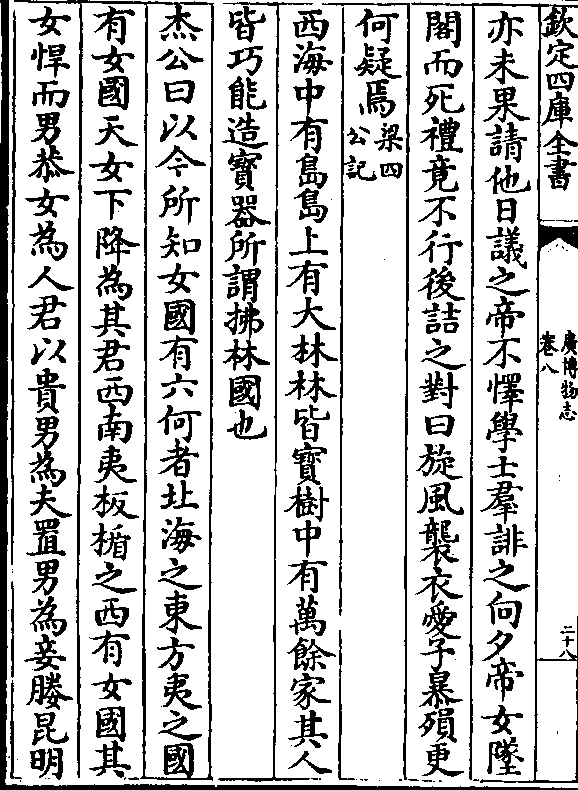 欽定四庫全書
廣博物志
卷八
二十八
亦未果請他日議之帝不懌學士羣誹之向夕帝女墜
閣而死禮竟不行後詰之對曰旋風襲衣愛子暴殞更
何疑焉梁四
公記
西海中有島島上有大林林皆寶樹中有萬餘家其人
皆巧能造寶器所謂拂林國也
杰公曰以今所知女國有六何者北海之東方夷之國
有女國天女下降為其君西南夷板楯之西有女國其
女悍而男恭女為人君以貴男為夫置男為妾媵昆明